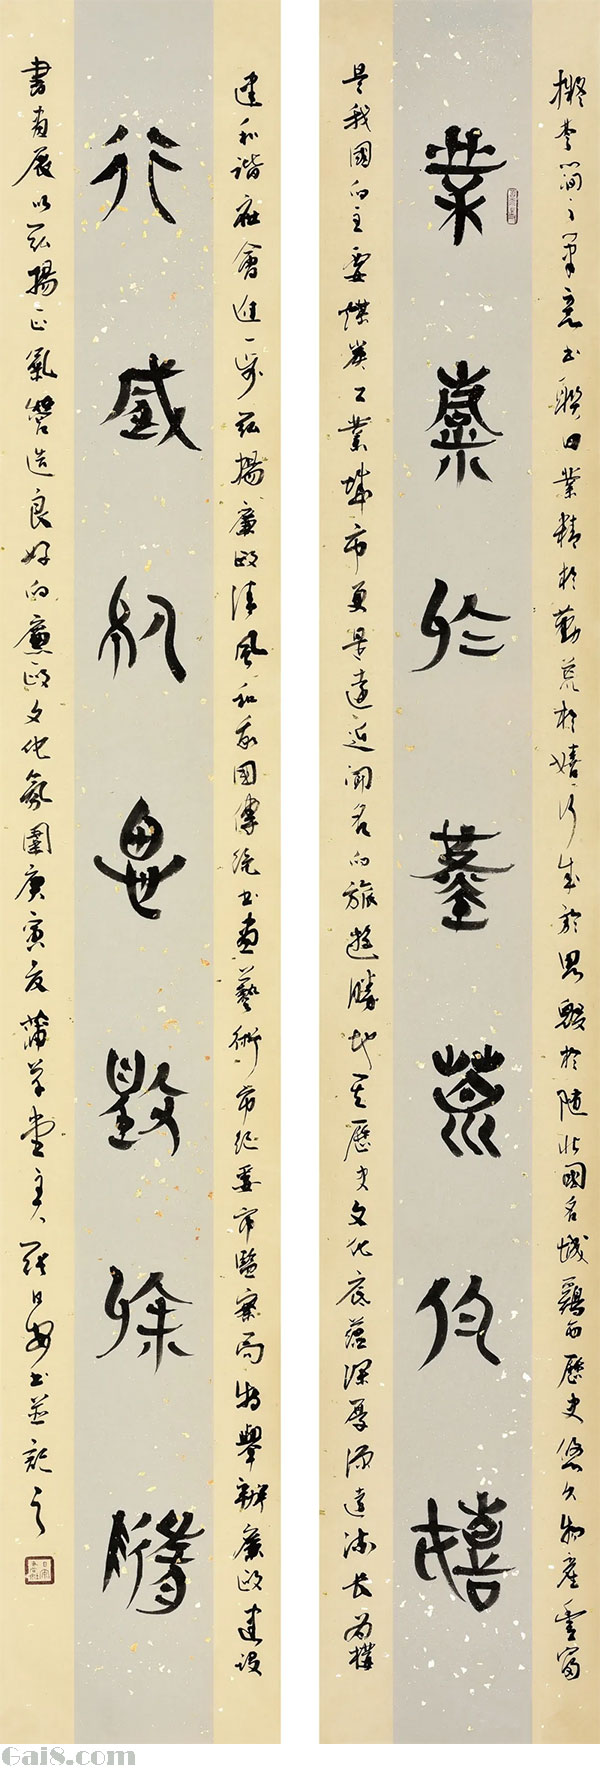 擬楚簡之筆意書聯曰業精於勤荒於嬉行成於思毀於隨北國名城鷄西歷史悠久物產豐富
業精於勤荒於嬉
是我國的主要煤炭工業城市更是遠近聞名的旅遊勝地其歷史文化底蘊深厚源遠流長為構
建和諧社會進一步弘揚廉政清風和我國傳統書畫藝術市紀委市監察局特舉辦廉政建設
行成於思毀於隨
書畫展以弘揚正氣營造良好的廉政文化氛圍庚寅夏蒲草堂主人日安書並記之
Gai8.com